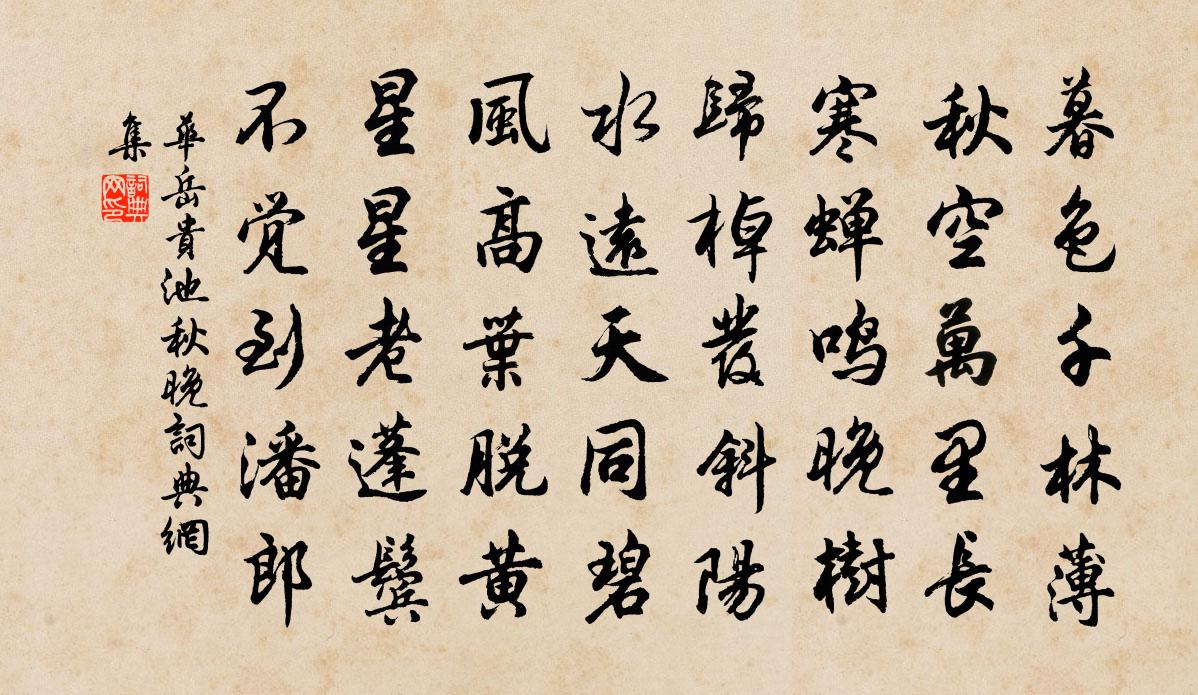 暮色千林薄
秋空萬里長
寒蝉鳴晚樹
歸棹發斜陽
水遠天同碧
風高葉脫黄
星星老蓬鬢
不觉到潘郎
華岳貴池秋晚詞典網
集
詞典
网印